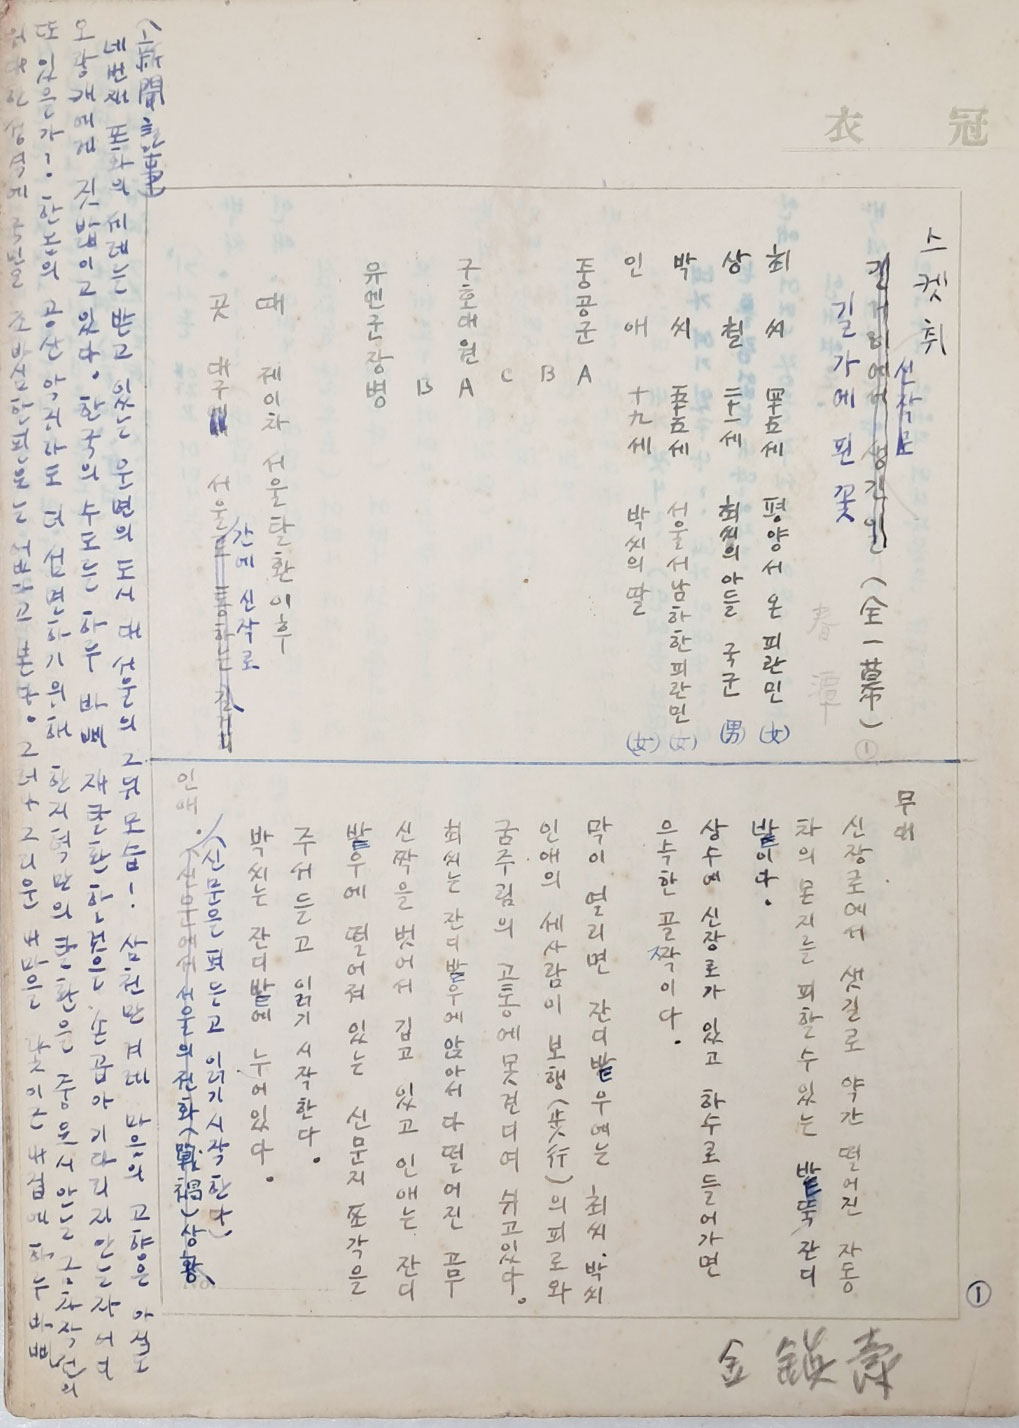 衣冠
스켓취
신작로
길가에 핀 꽃 (全一幕) ①
春潭
최씨 四十五세 평양서 온 피란민 (女)
상철 二十一세 최씨의 아들 국군 (男)
박씨 五十五세 서울서 남하한 피란민 (女)
인애 十九세 박씨의 딸 (女)
중공군 A
B
C
구호대원 A
B
유엔군 장병
때 제이차 서울 탈환 이후
곳 대구 서울 간에 신작로
무대
신장로에서 샛길로 약간 떨어진 자동
차의 몬지는 피할 수 있는 밭뚝 잔디
밭이다.
상수에 신장로가 있고 하수로 들어가면
으슥한 골짝이다.
막이 열리면 잔디밭 우에는 최씨 박씨
인애의 세사람이 보행(步行)의 피로와
굼주림의 고통에 못견디여 쉬고있다.
최씨는 잔디밭 우에 앉아서 다 떨어진 곰무
신짝을 벗어서 깁고 있고 인애는 잔디
밭우에 떨어저 있는 신문지 쪼각을
주서 들고 읽기 시작한다.
박씨는 잔디밭에 누어있다.
(신문은 펴들고 읽기 시작한다)
인애. 신문에서 서울의 전화(戰禍) 상황
(新聞記事)
네번재 포화의 세례는 받고 있는 운면의 도시 대서울의 그 뒤 모습! 삼천만 겨레 마음의 고향은 아직도
오랑캐에게 짓밟이고 있다. 한국의 수도는 하루 바삐 재탈환 하는 것을 손곱아 기다리지 안는자 어디
또 있을가!
①
金鎭壽